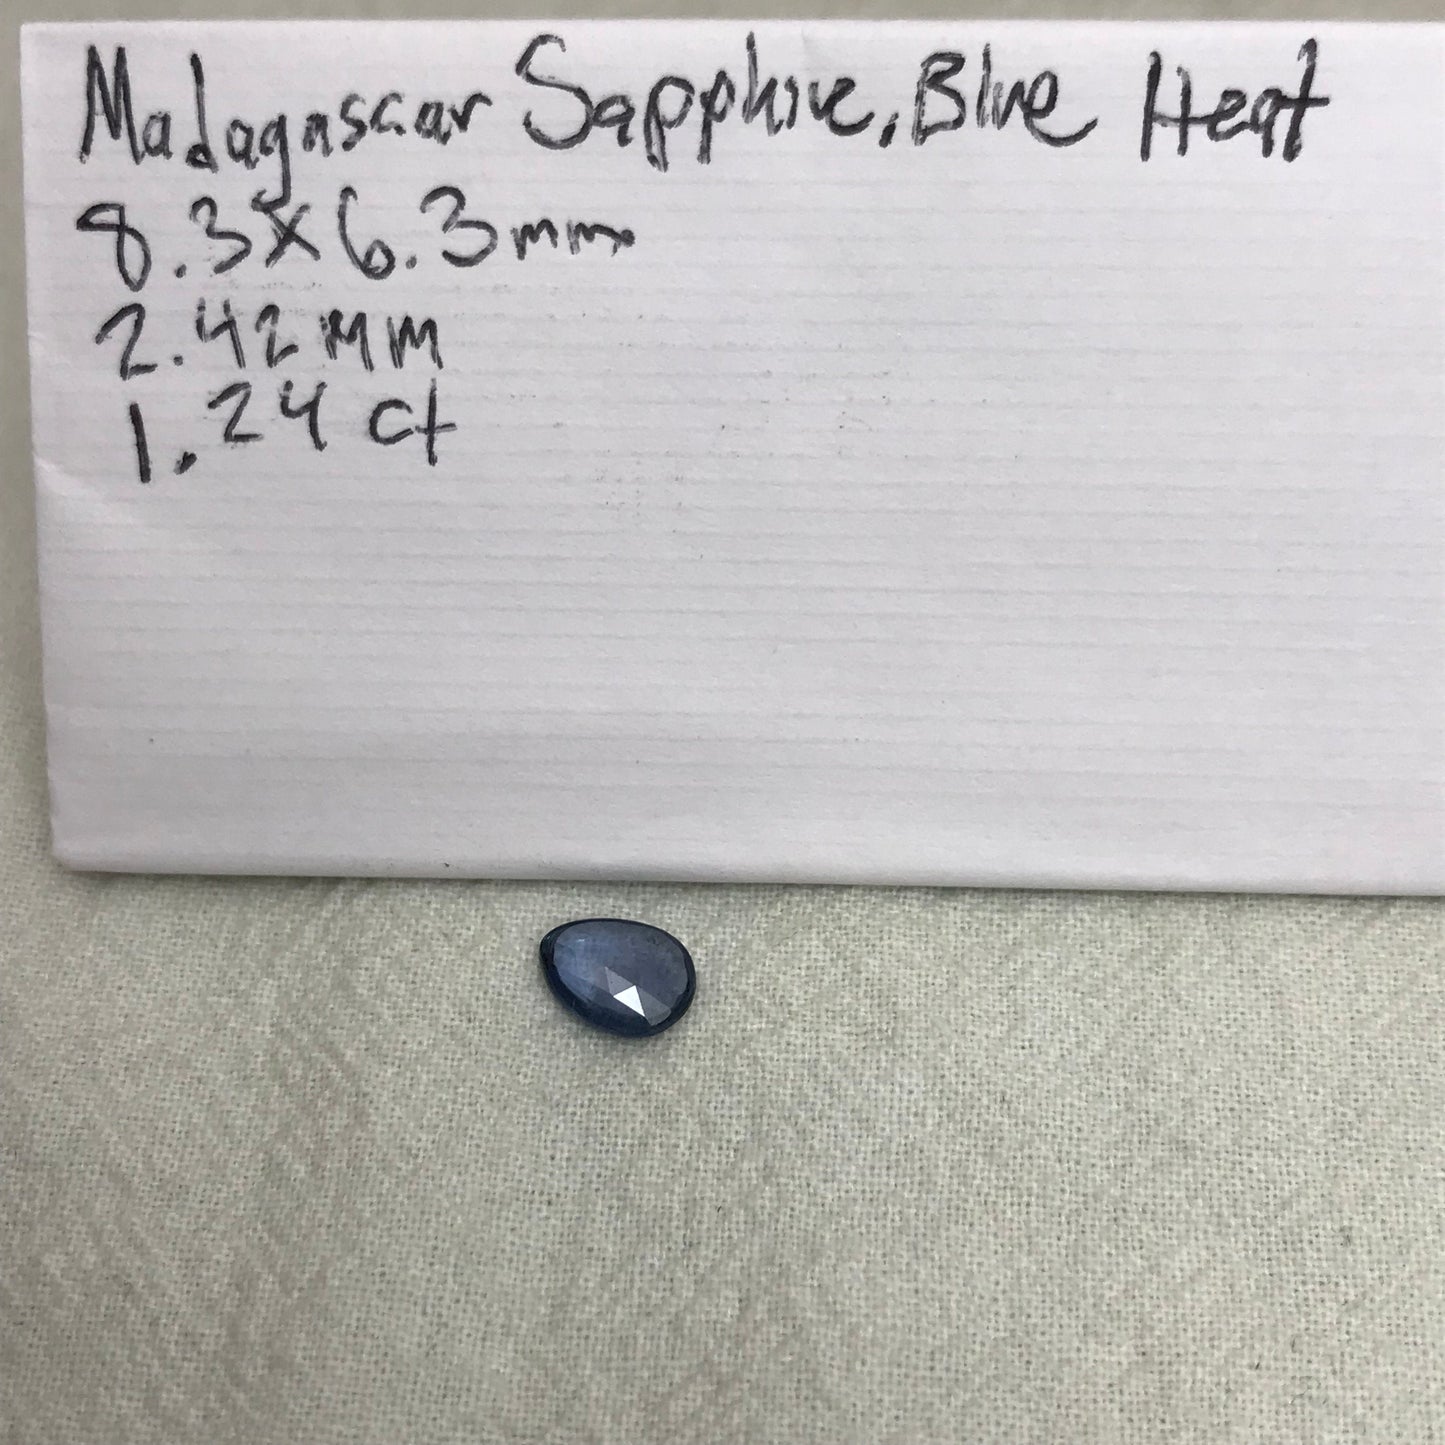 Madagascar Sapphire, Blue Heat
8.3x6.3mm
2.42mm
1.24 ct